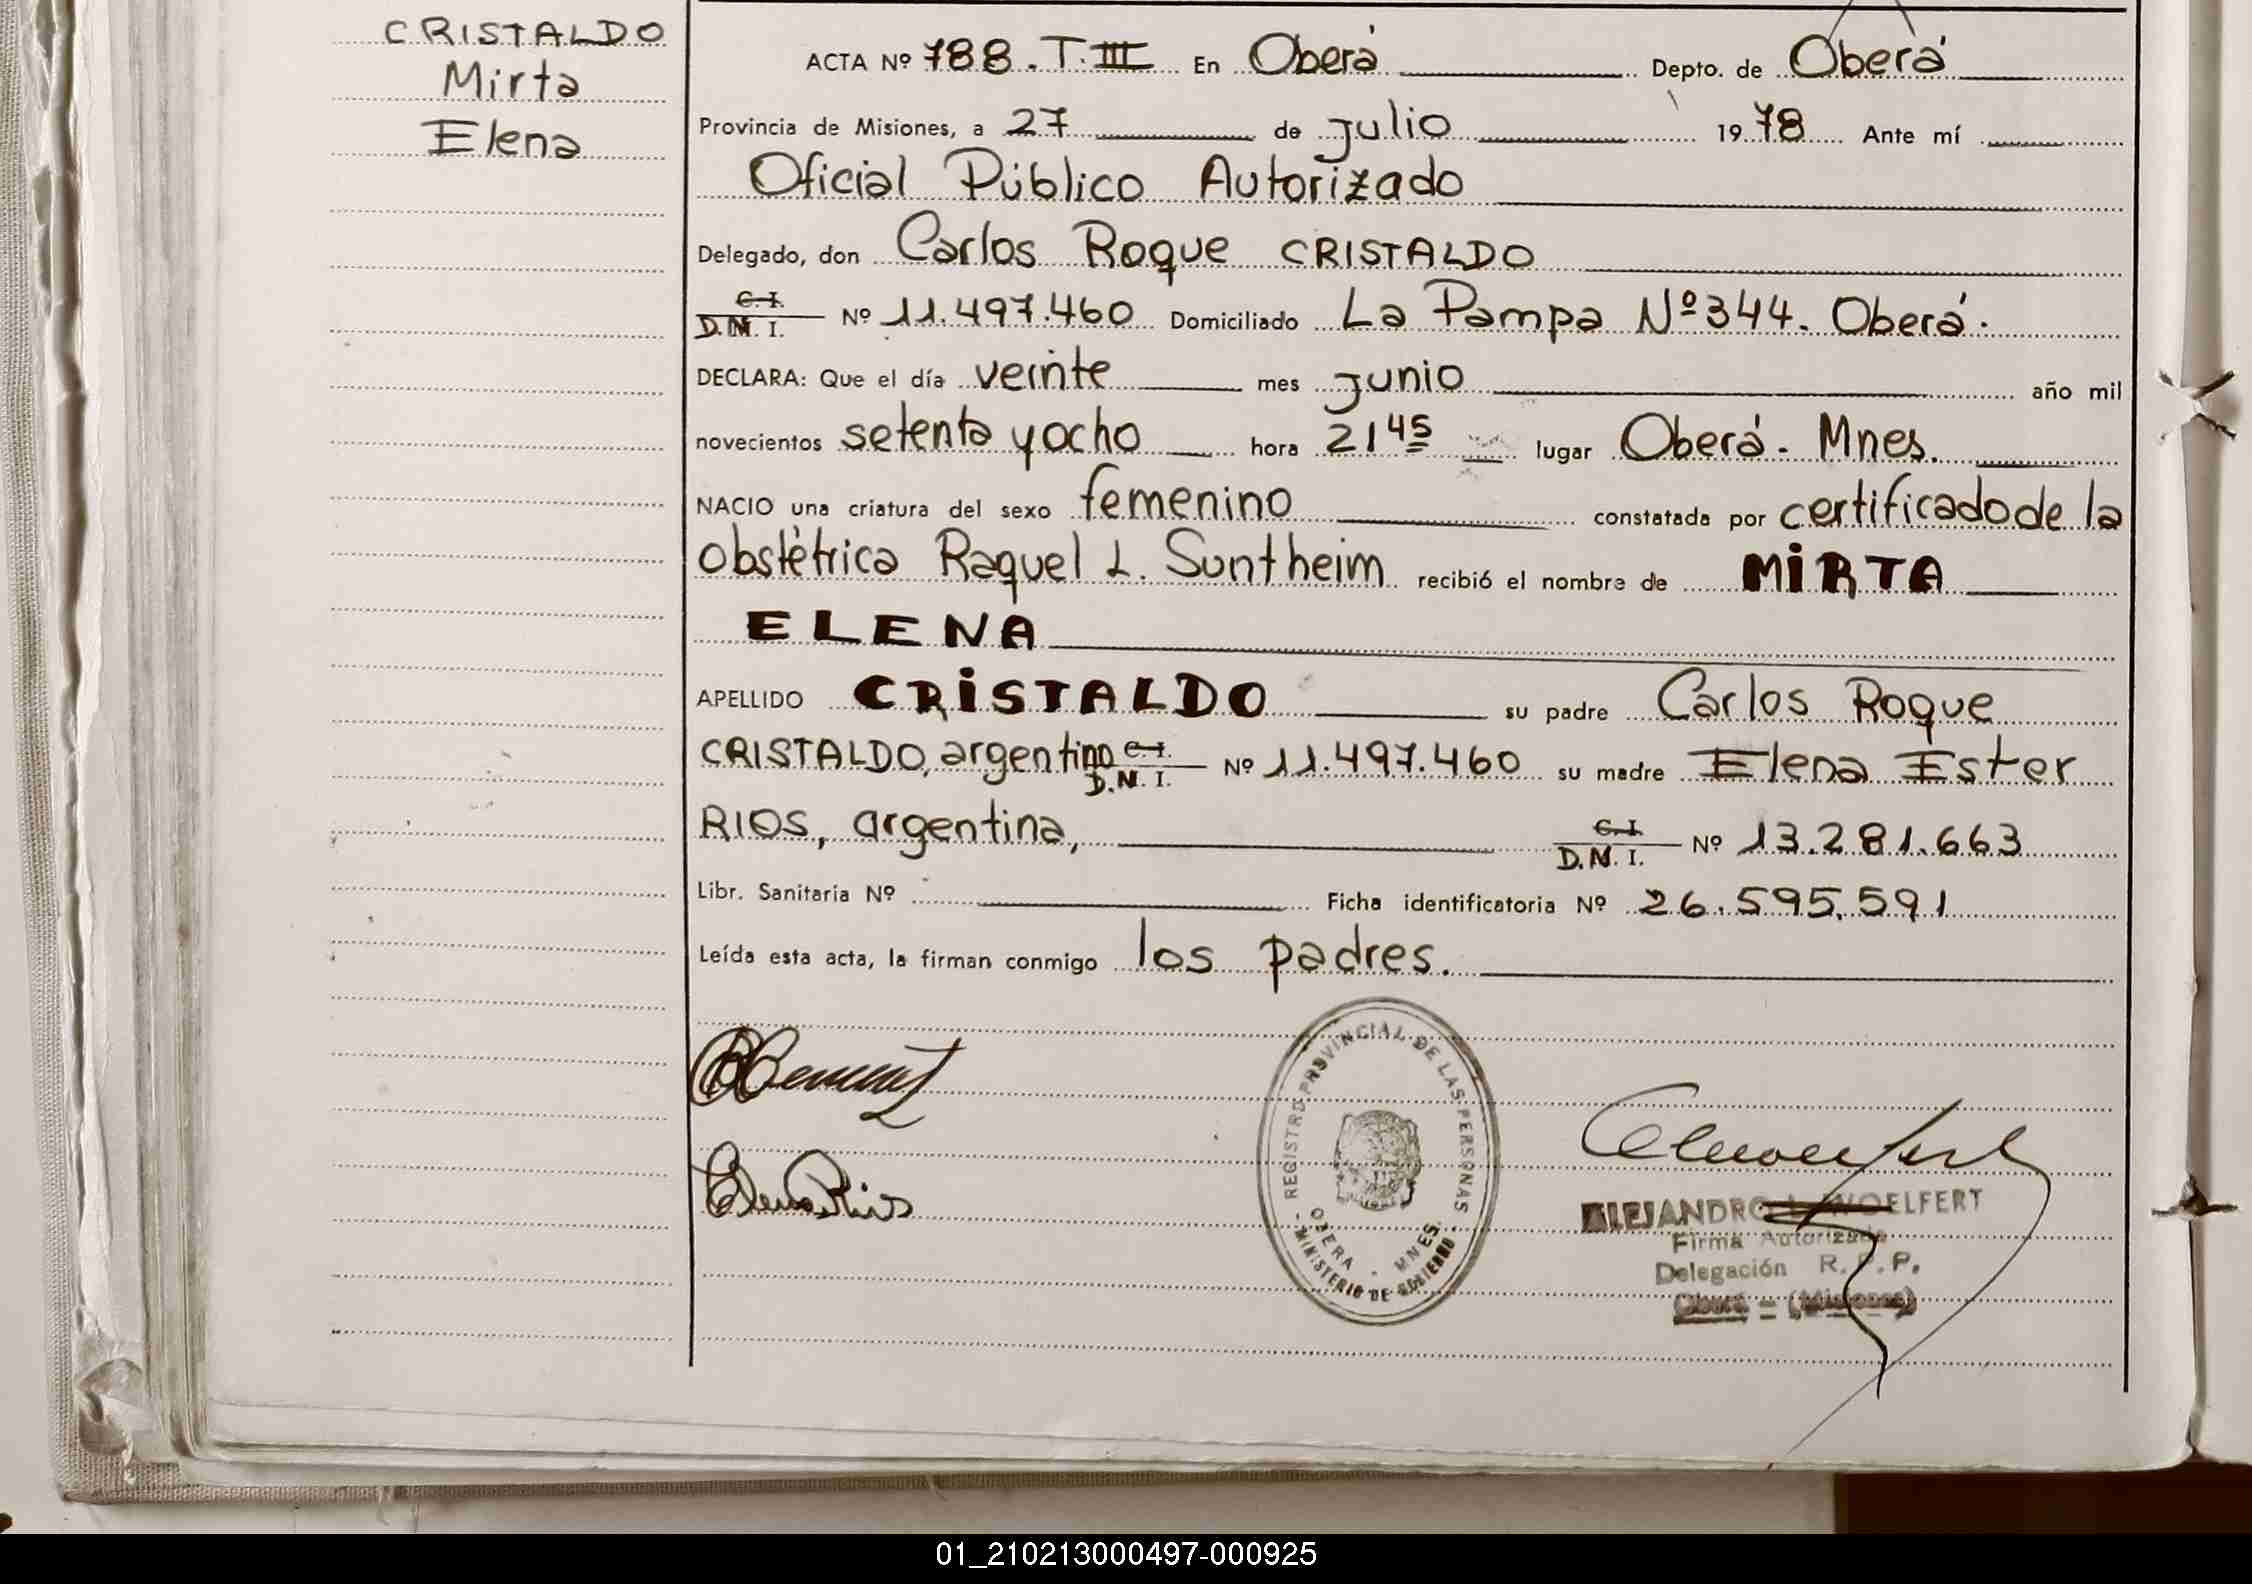 CRISTALDO
Mirta
Elena
ACTA Nº 788. T. III En Oberá Depto. de Oberá
Provincia de Misiones, a 27 de julio 1978 Ante mí
Oficial Público Autorizado
Delegado, don Carlos Roque CRISTALDO
C. I.
D. N. I. Nº 11.497.460 Domiciliado La Pampa Nº 344. Oberá.
DECLARA: Que el día veinte mes junio año mil
novecientos setenta y ocho hora 21 45 lugar Oberá - Mnes.
NACIO una criatura del sexo femenino constatada por certificado de la
obstétrica Raquel L. Suntheim recibió el nombre de MIRTA
ELENA
APELLIDO CRISTALDO su padre Carlos Roque
CRISTALDO, argentino C. I.
D. N. I. Nº 11.497.460 su madre Elena Ester
RIOS, argentina, C. I.
D. N. I. Nº 13.281.663
Libr. Sanitaria Nº Ficha identificatoria Nº 26.595.591
Leída esta acta, la firman conmigo los padres.
REGISTRO PROVINCIAL DE LAS PERSONAS
OBERA - MNES
MINISTERIO DE GOBIERNO
Elena Rios
ALEJANDRO WOELFERT
Firma Autorizada
Delegación R. P. P.
Oberá - (Misiones)
01_210213000497-000925